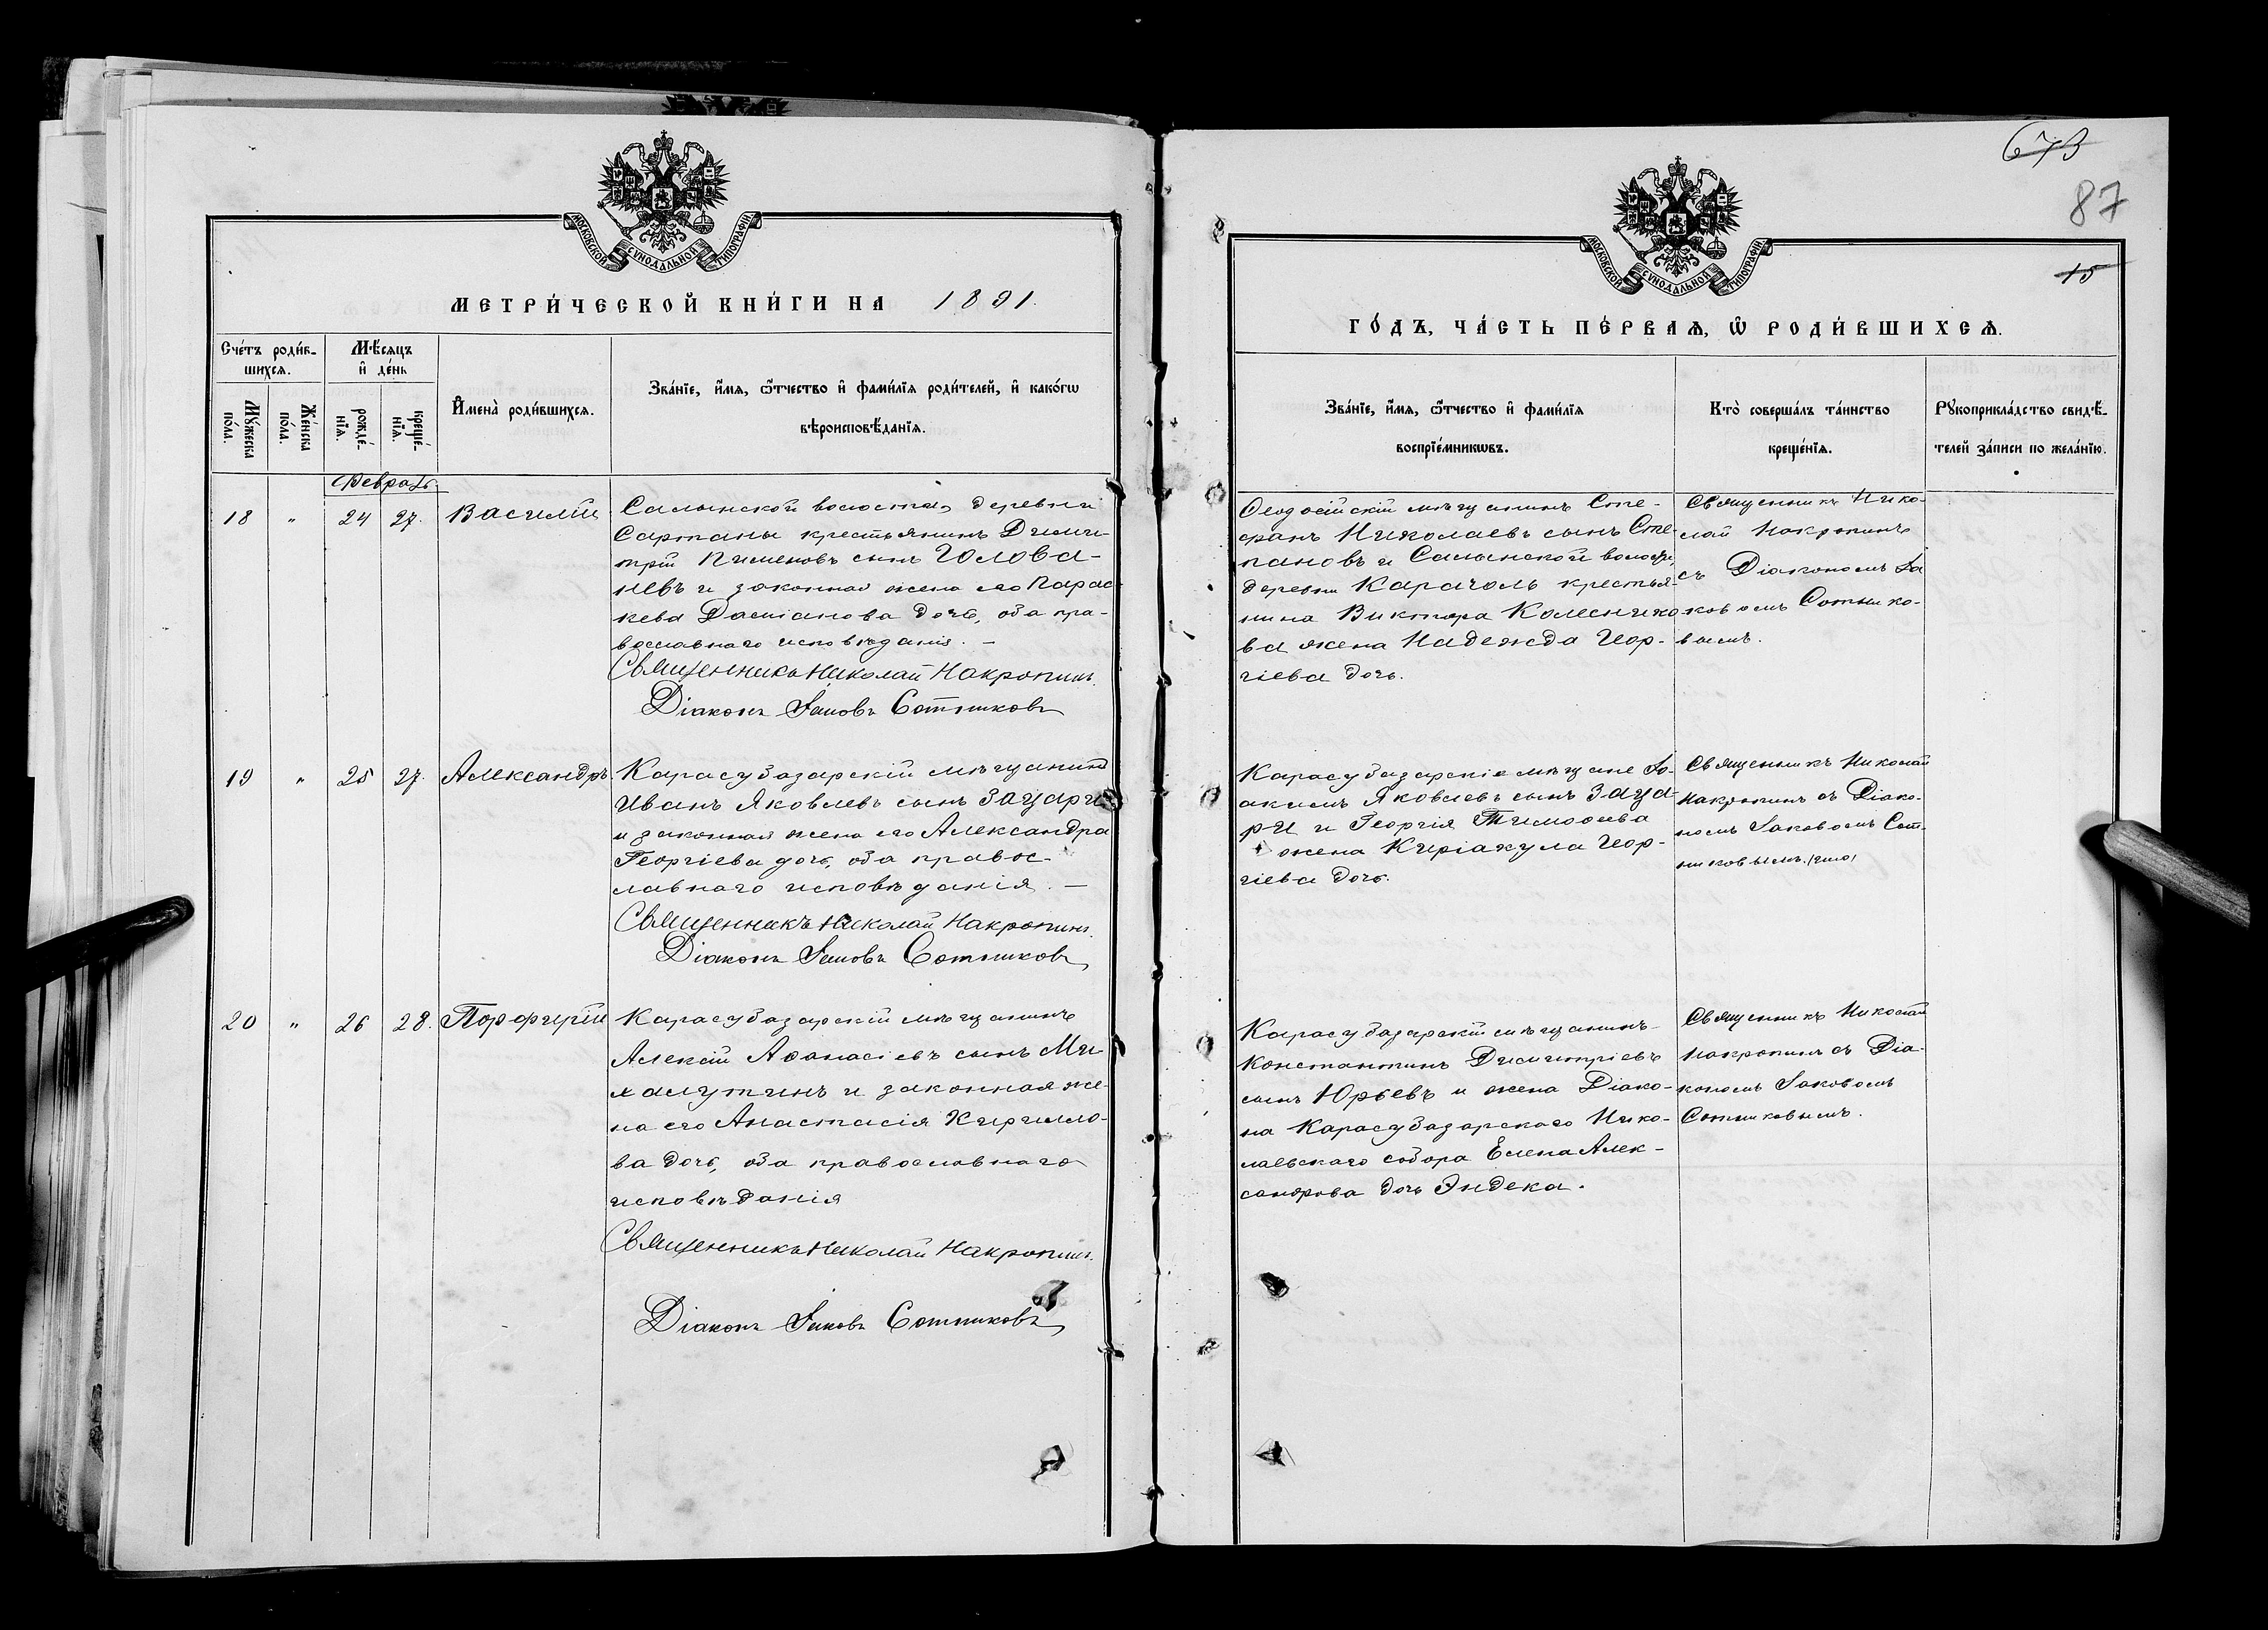 МОСКОВСКОЙ СѴНОДАЛЬНОЙ ТИПОГРАФІИ
МЕТРИ́ЧЕСКОЙ КНИ́ГИ НА 1891.
Сче́тъ роди́в-
шихся.
Мѣ́сяцъ
и҆ де́нь
Мꙋ́жеска
по́ла.
Же́нска
по́ла.
рожде́-
нїѧ.
креще́-
нїѧ.
И҆мена̀ роди́вшихсѧ.
Зва́нїе, и҆́мѧ, ѻ҆́тчество и҆ фами́лїѧ роди́телей, и҆ како́гѡ
вѣроисповѣ́данїѧ.
Февраль
18 " 24 27. Василій
Салынской волости, деревни
Сартаны крестьянинъ Дими-
трій Пименовъ сынъ Голова-
невъ и законная жена его Парас-
кева Даміанова дочь, оба пра-
вославнаго исповѣданія. —
Священникъ Николай Накропинъ.
Діаконъ Іаковъ Сотниковъ
19 " 25 27. Александръ
Карасубазарскій мѣщанинъ
Иванъ Яковлевъ сынъ Зацари
и законная жена его Александра
Георгіева дочь, оба правос-
лавнаго исповѣданія. —
Священникъ Николай Накропинъ.
Діаконъ Іаковъ Сотниковъ
20 " 26 28. Порфирій
Карасубазарскій мѣщанинъ
Алексій Аѳанасіевъ сынъ Ми-
халутинъ и законная же-
на его Анастасія Кирилло-
ва дочь, оба православнаго
исповѣданія
Священникъ Николай Накропинъ.
Діаконъ Іаковъ Сотниковъ
673
87
15
МОСКОВСКОЙ СѴНОДАЛЬНОЙ ТИПОГРАФІИ
ГО́ДЪ, ЧА́СТЬ ПЕ́РВАѦ, Ѡ҆ РОДИ́ВШИХСѦ.
Зва́нїе, и҆́мѧ, ѻ҆́тчество и҆ фами́лїѧ
воспрїе́мникѡвъ.
Кто̀ соверша́лъ та́инство
креще́нїѧ.
Рꙋкоприкла́дство свидѣ́-
телей за́писи по жела́нїю.
Ѳеодосійскій мѣщанинъ Сте-
фанъ Николаевъ сынъ Сте-
пановъ и Салынской волости,
деревни Карачоль крестья-
нина Виктора Колеснико-
ва жена Надежда Геор-
гіева дочь.
Священникъ Нико-
лай Накропинъ
съ Діакономъ Іа
ковомъ Сотнико-
вымъ.
Карасубазарскіе мѣщане Іо-
акимъ Яковлевъ сынъ Заца-
ри и Георгія Тимоѳеева
жена Киріакула Геор-
гіева дочь.
Священникъ Николай
Накропинъ съ Діако-
номъ Іаковомъ Сот-
никовымъ.
Карасубазарскій мѣщанинъ
Константинъ Димитріевъ
сынъ Юрьевъ и жена Діако-
на Карасубазарскаго Нико-
лаевскаго собора Елена Алек-
сандрова дочь Эндека.
Священникъ Николай
Накропинъ съ Діа-
кономъ Іаковомъ
Сотниковымъ.